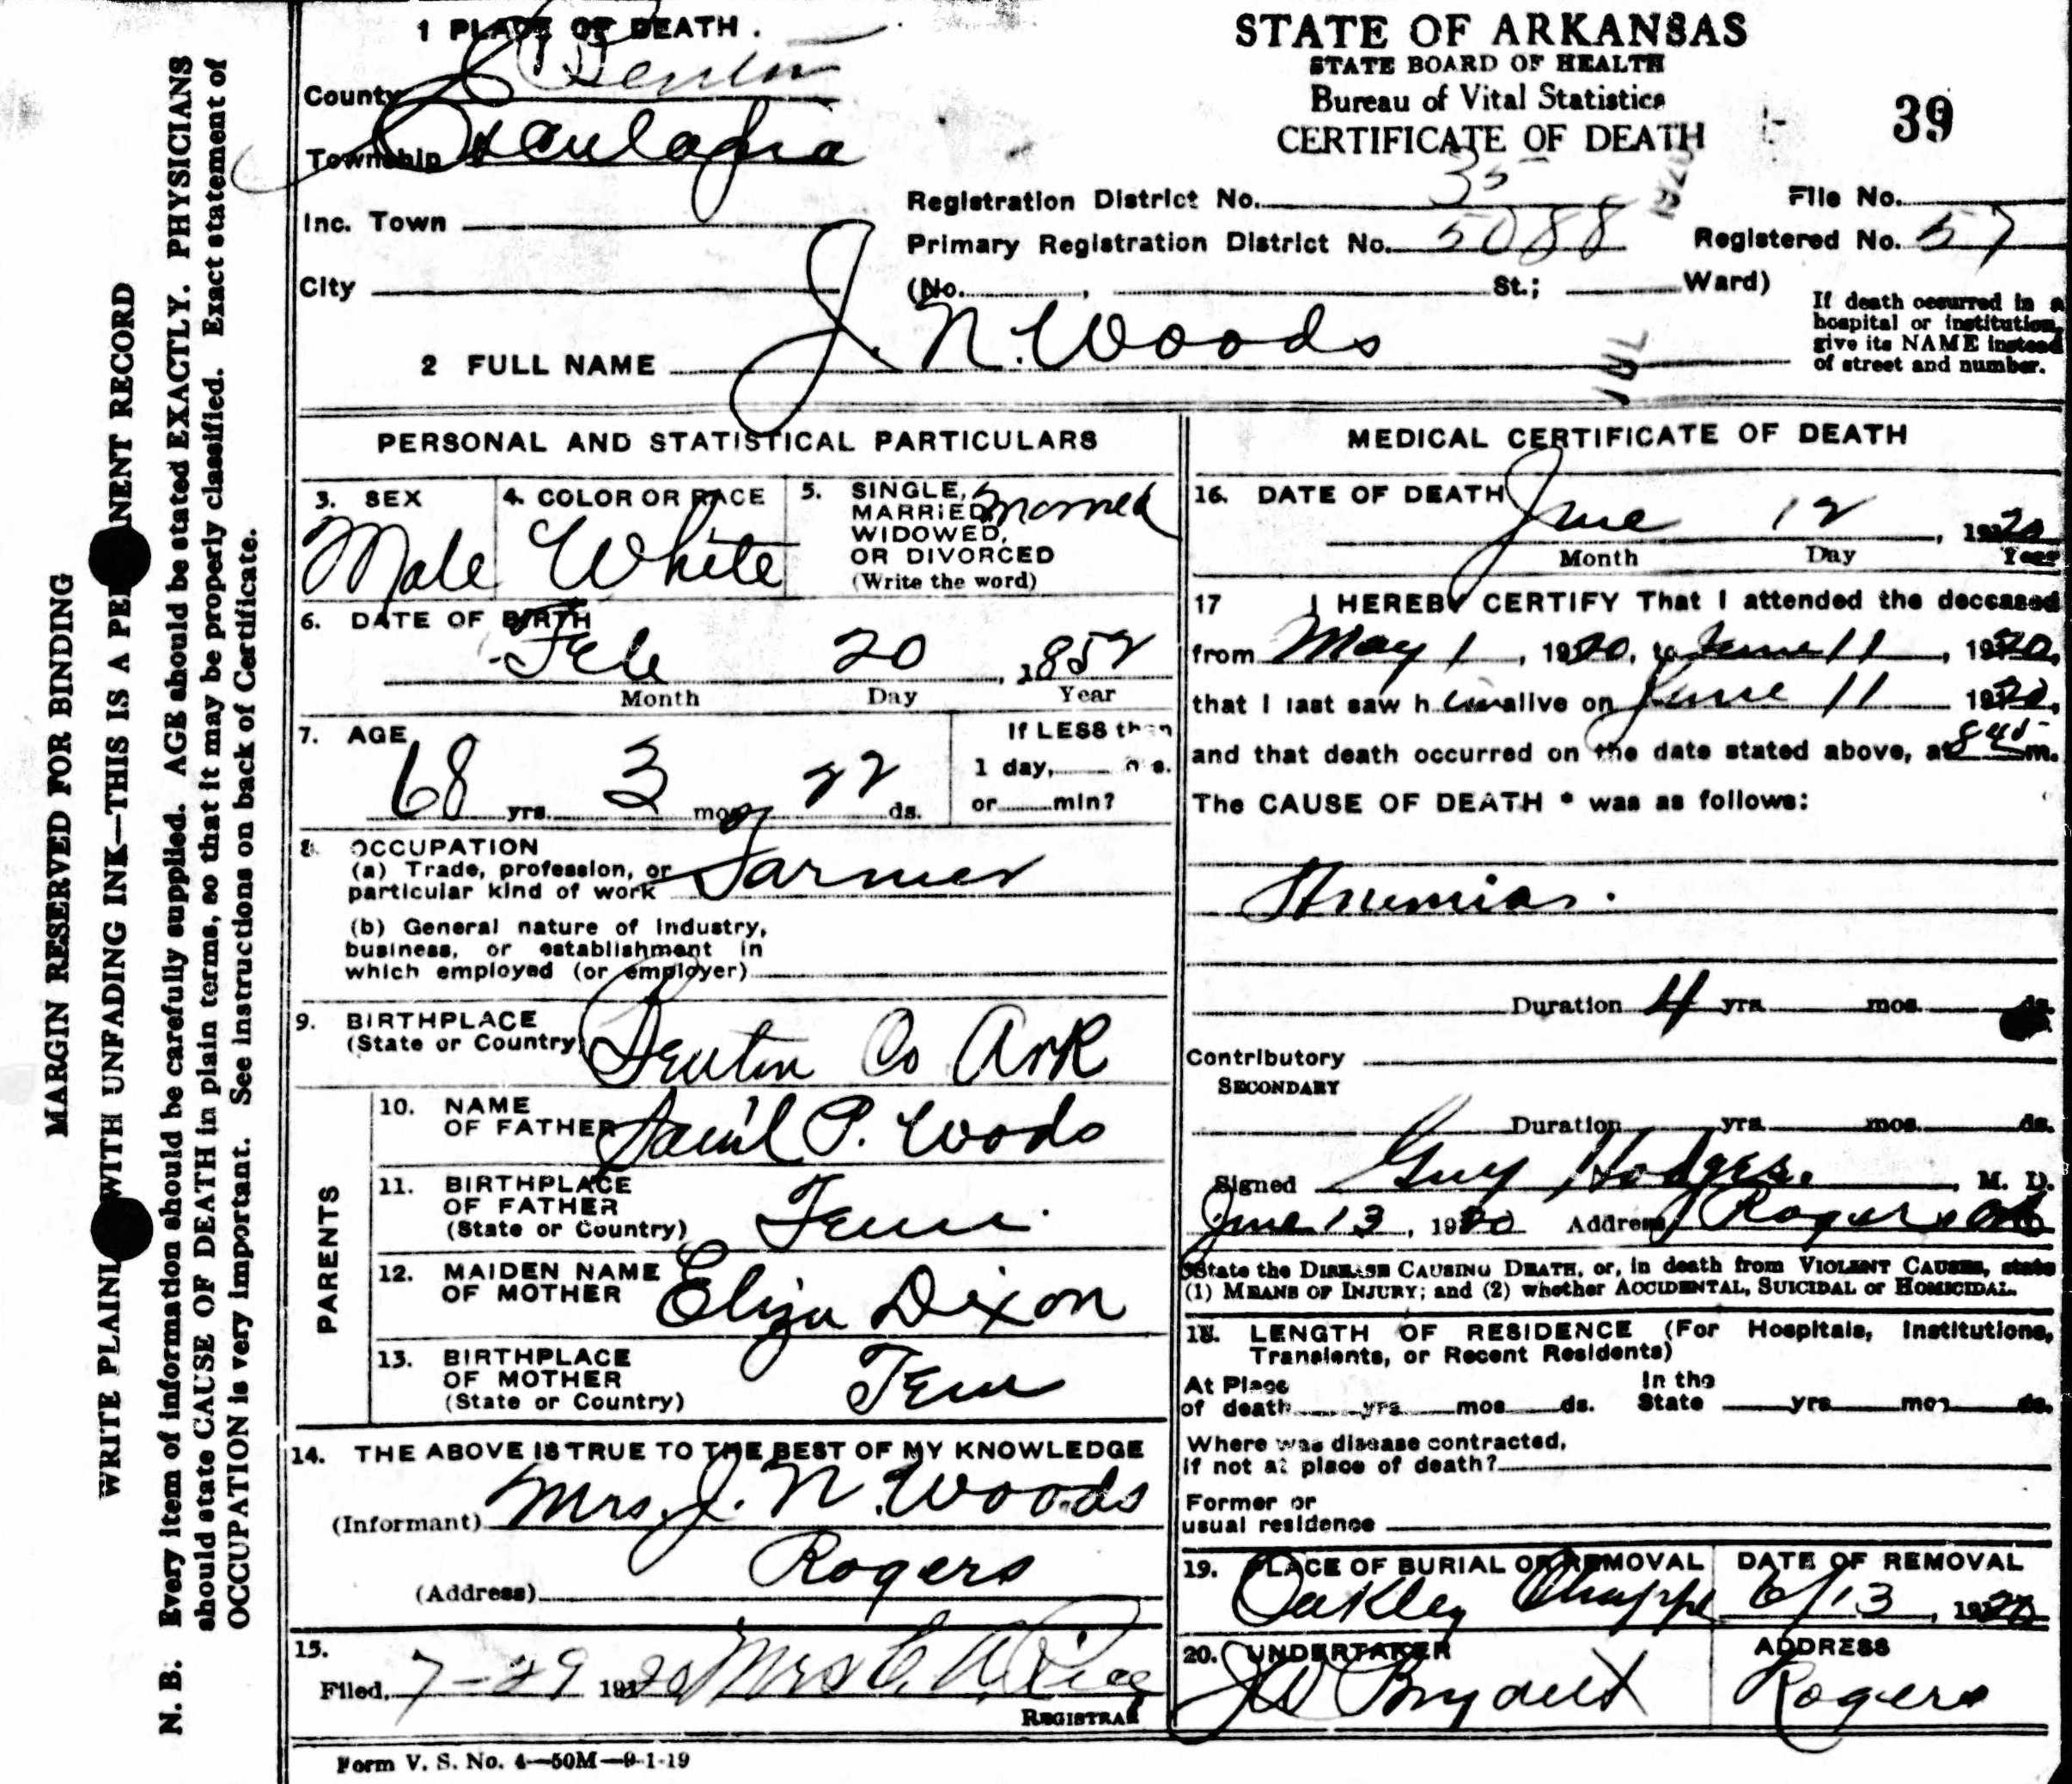 MARGIN RESERVED FOR BINDING
WRITE PLAINL WITH UNFADING INK—THIS IS A PE NENT RECORD
N. B. Every item of information should be carefully supplied. AGE should be stated EXACTLY. PHYSICIANS
should state CAUSE OF DEATH in plain terms, so that it may be properly classified. Exact statement of
OCCUPATION is very important. See instructions on back of Certificate.
1 PLACE OF DEATH.
County Benton
Township Osculapia
Inc. Town
City
STATE OF ARKANSAS
STATE BOARD OF HEALTH
Bureau of Vital Statistics
CERTIFICATE OF DEATH
39
Registration District No. 35
File No.
Primary Registration District No. 5088 Registered No. 57
(No. , St.; Ward)
If death occurred in a
hospital or institution,
give its NAME instead
of street and number.
JUL 1920
2 FULL NAME J. N. Woods
PERSONAL AND STATISTICAL PARTICULARS
3. SEX
Male
4. COLOR OR RACE
White
5. SINGLE,
MARRIED, Married
WIDOWED,
OR DIVORCED
(Write the word)
6. DATE OF BIRTH
Feb 20, 1852
Month Day Year
7. AGE
68 yrs. 3 mos. 22 ds.
If LESS than
1 day, s.
or min?
8. OCCUPATION
(a) Trade, profession, or
particular kind of work Farmer
(b) General nature of Industry,
business, or establishment in
which employed (or employer)
9. BIRTHPLACE
(State or Country) Benton Co Ark
PARENTS
10. NAME
OF FATHER Sam'l P. Woods
11. BIRTHPLACE
OF FATHER
(State or Country) Tenn.
12. MAIDEN NAME
OF MOTHER Eliza Dixon
13. BIRTHPLACE
OF MOTHER
(State or Country) Tenn
14. THE ABOVE IS TRUE TO THE BEST OF MY KNOWLEDGE
(Informant) Mrs. J. N. Woods
(Address) Rogers
15.
Filed, 7-29 1920 Mrs C. A.
REGISTRAR
Form V. S. No. 4—50M—9-1-19
MEDICAL CERTIFICATE OF DEATH
16. DATE OF DEATH
June 12, 1920
Month Day Year
17 I HEREBY CERTIFY That I attended the deceased
from May 1, 1920, to June 11, 1920,
that I last saw him alive on June 11 1920,
and that death occurred on the date stated above, at 845 m.
The CAUSE OF DEATH * was as follows:
Anemia.
Duration 4 yrs mos ds.
Contributory
SECONDARY
Duration yrs. mos. ds.
Signed Guy Hodges., M. D.
June 13, 1920 Address Rogers Ark
*State the DISEASE CAUSING DEATH, or, in death from VIOLENT CAUSES, state
(1) MEANS OF INJURY; and (2) whether ACCIDENTAL, SUICIDAL or HOMICIDAL.
18. LENGTH OF RESIDENCE (For Hospitals, Institutions,
Transients, or Recent Residents)
At Place In the
of death yrs mos ds. State yrs mos ds.
Where was disease contracted,
if not at place of death?
Former or
usual residence
19. PLACE OF BURIAL OR REMOVAL
Oakley Chappel
DATE OF REMOVAL
6/13, 1920
20. UNDERTAKER
J W Bryant
ADDRESS
Rogers